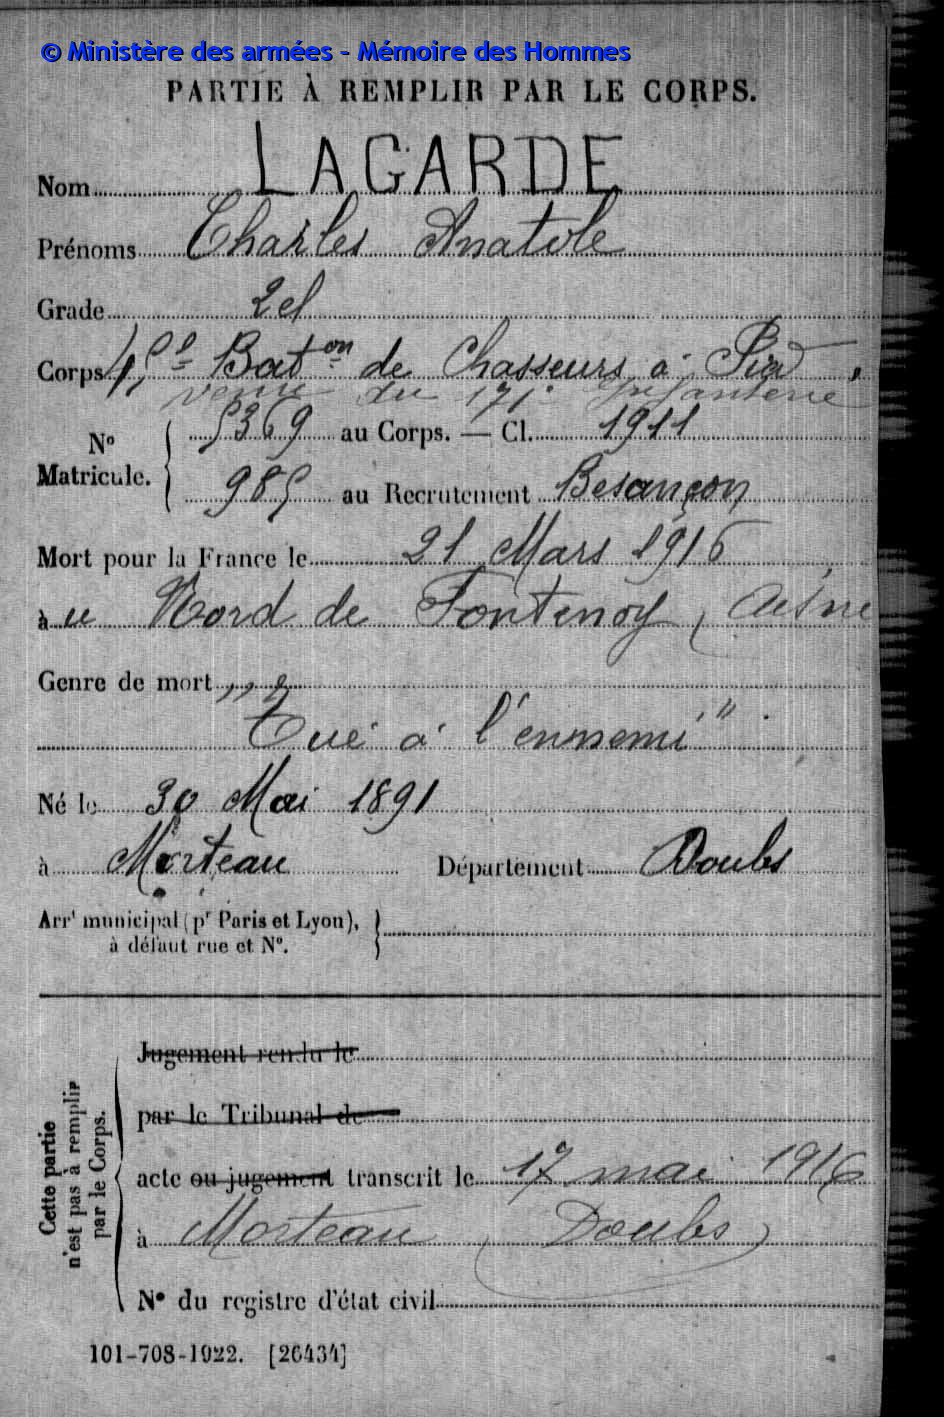 © Ministère des armées - Mémoire des Hommes
PARTIE À REMPLIR PAR LE CORPS.
Nom LAGARDE
Prénoms Charles Anatole
Grade 2 cl
Corps 45e Baton de Chasseurs à Pied
venu du 171e Infanterie
N° Matricule. { 5369 au Corps. — Cl. 1911
985 au Recrutement Besançon
Mort pour la France le 21 Mars 1916
à u Nord de Fontenoy (Aisne
Genre de mort
"Tué à l'ennemi"
Né le 30 Mai 1891
à Morteau Département Doubs
Arrt municipal (pr Paris et Lyon), }
à défaut rue et N°.
Cette partie
n'est pas à remplir
par le Corps.
Jugement rendu le
par le Tribunal de
acte ou jugement transcrit le 17 mai 1916
à Morteau (Doubs)
N° du registre d'état civil
101-708-1922. [26434]